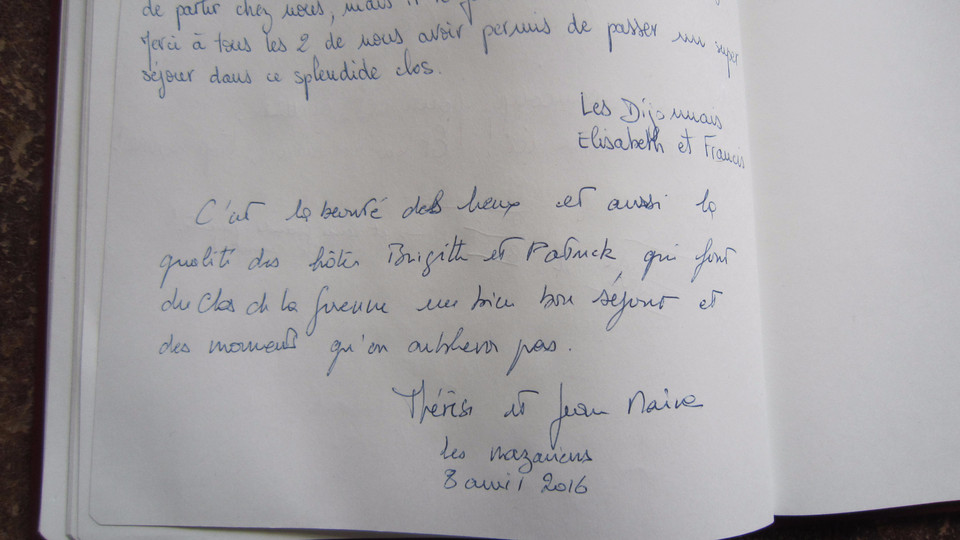 de partir chez nous, mais
Merci à tous les 2 de nous avoir permis de passer un super
séjour dans ce splendide clos.
Les Dijonnais
Elisabeth et Francis
C'est la beauté des lieux et aussi la
qualité des hôtes Brigitte et Patrick qui font
du Clos de la Garenne un bien bon séjour et
des moments qu'on oubliera pas.
Thérèse et Jean
les nazairiens
8 avril 2016